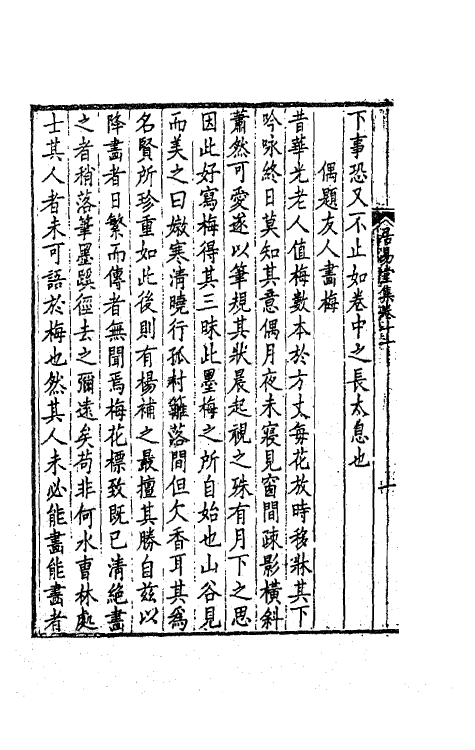 下事恐又不止如卷中之長太息也
偶題友人畫梅
昔華光老人值梅數本於方丈每花放時移牀其下
吟咏終日莫知其意偶月夜未寢見窗間疎影橫斜
蕭然可愛遂以筆規其狀晨起視之殊有月下之思
因此好寫梅得其三昧此墨梅之所自始也山谷見
而美之曰嫩寒清曉行孤村籬落間但欠香耳其為
名賢所珍重如此後則有楊補之最擅其勝自兹以
降畫者日繁而傳者無聞焉梅花標致既已清絶畫
之者稍落筆墨蹊徑去之彌遠矣苟非何水曹林處
士其人者未可語於梅也然其人未必能畫能畫者